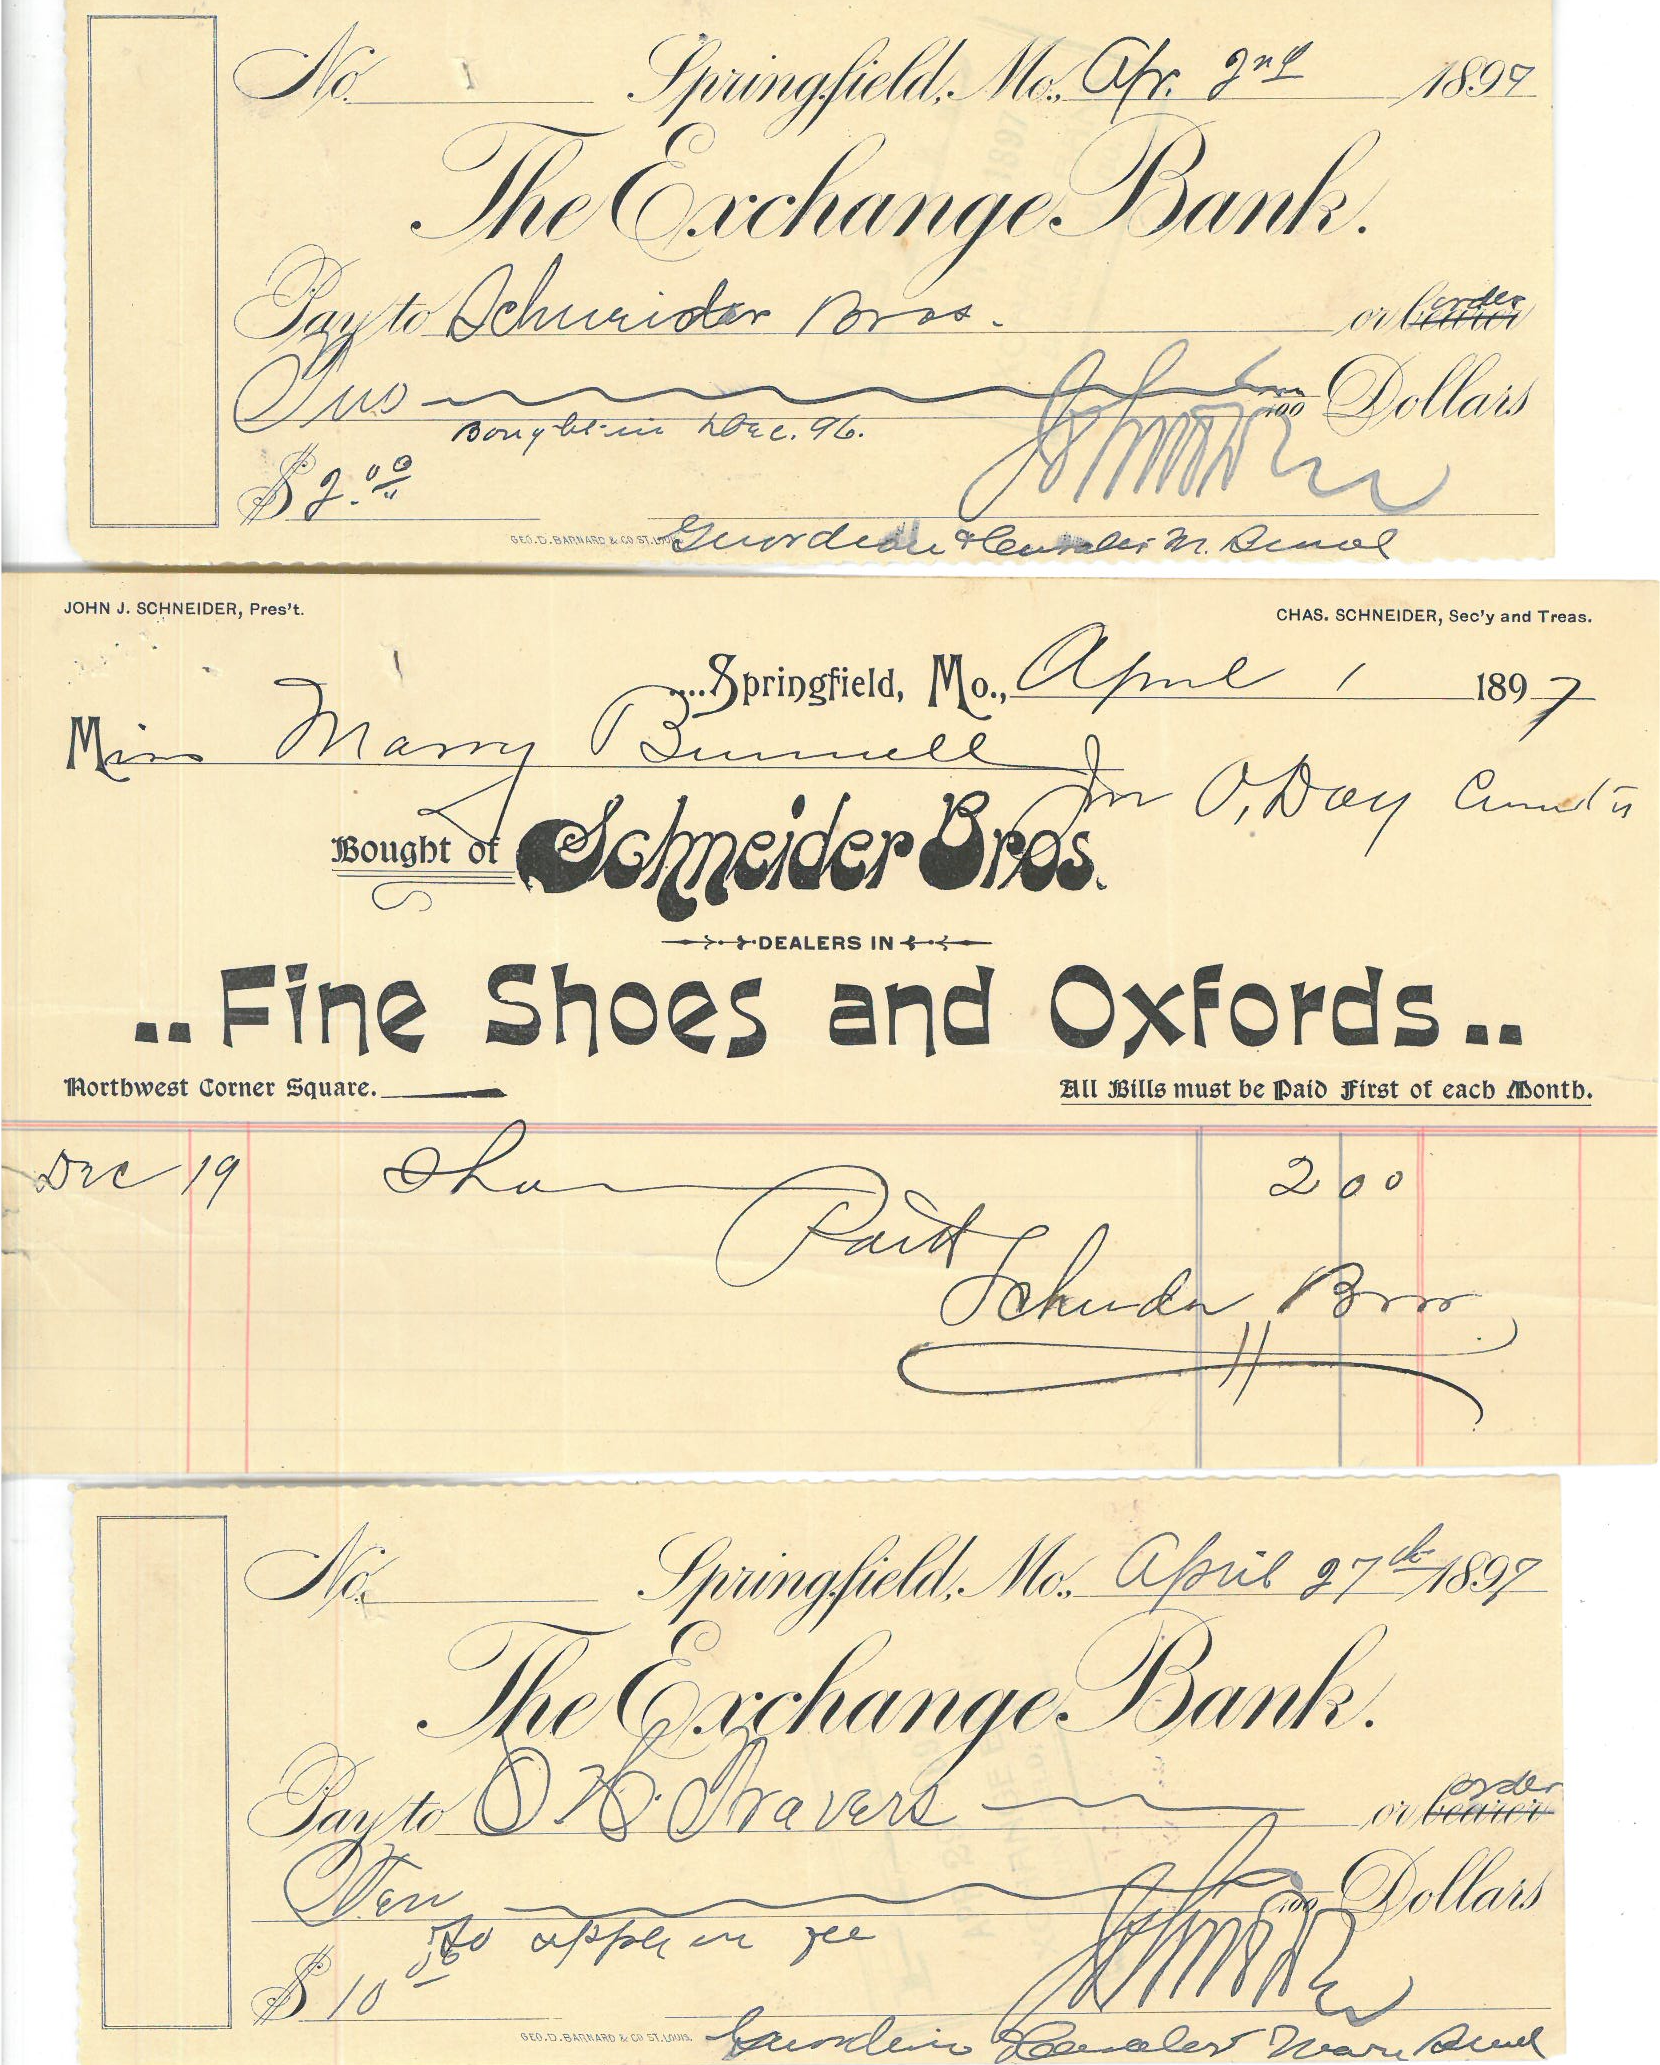 No. Springfield, Mo., Apr. 2nd 1897
The Exchange Bank.
Pay to Schneider Bros. or bearer order
Two 100 Dollars
Bought in Dec. 96.
$ 2.00
GEO. D. BARNARD & CO ST. LOUIS
Guardian & Curator M.
JOHN J. SCHNEIDER, Pres't. CHAS. SCHNEIDER, Sec'y and Treas.
....Springfield, Mo., April 1 1897
Miss Marry Bunnell
Jno O, Day
Bought of Schneider Bros.
DEALERS IN
..Fine Shoes and Oxfords..
Northwest Corner Square. All Bills must be Paid First of each Month.
Dec 19 2 00
Paid
Schneider Bros
No. Springfield, Mo., April 27th 1897
The Exchange Bank.
Pay to O. H. Travers or bearer order
Ten 100 Dollars
to apply on fee
$ 10
GEO. D. BARNARD & CO ST. LOUIS.
Guardian Curator Mary